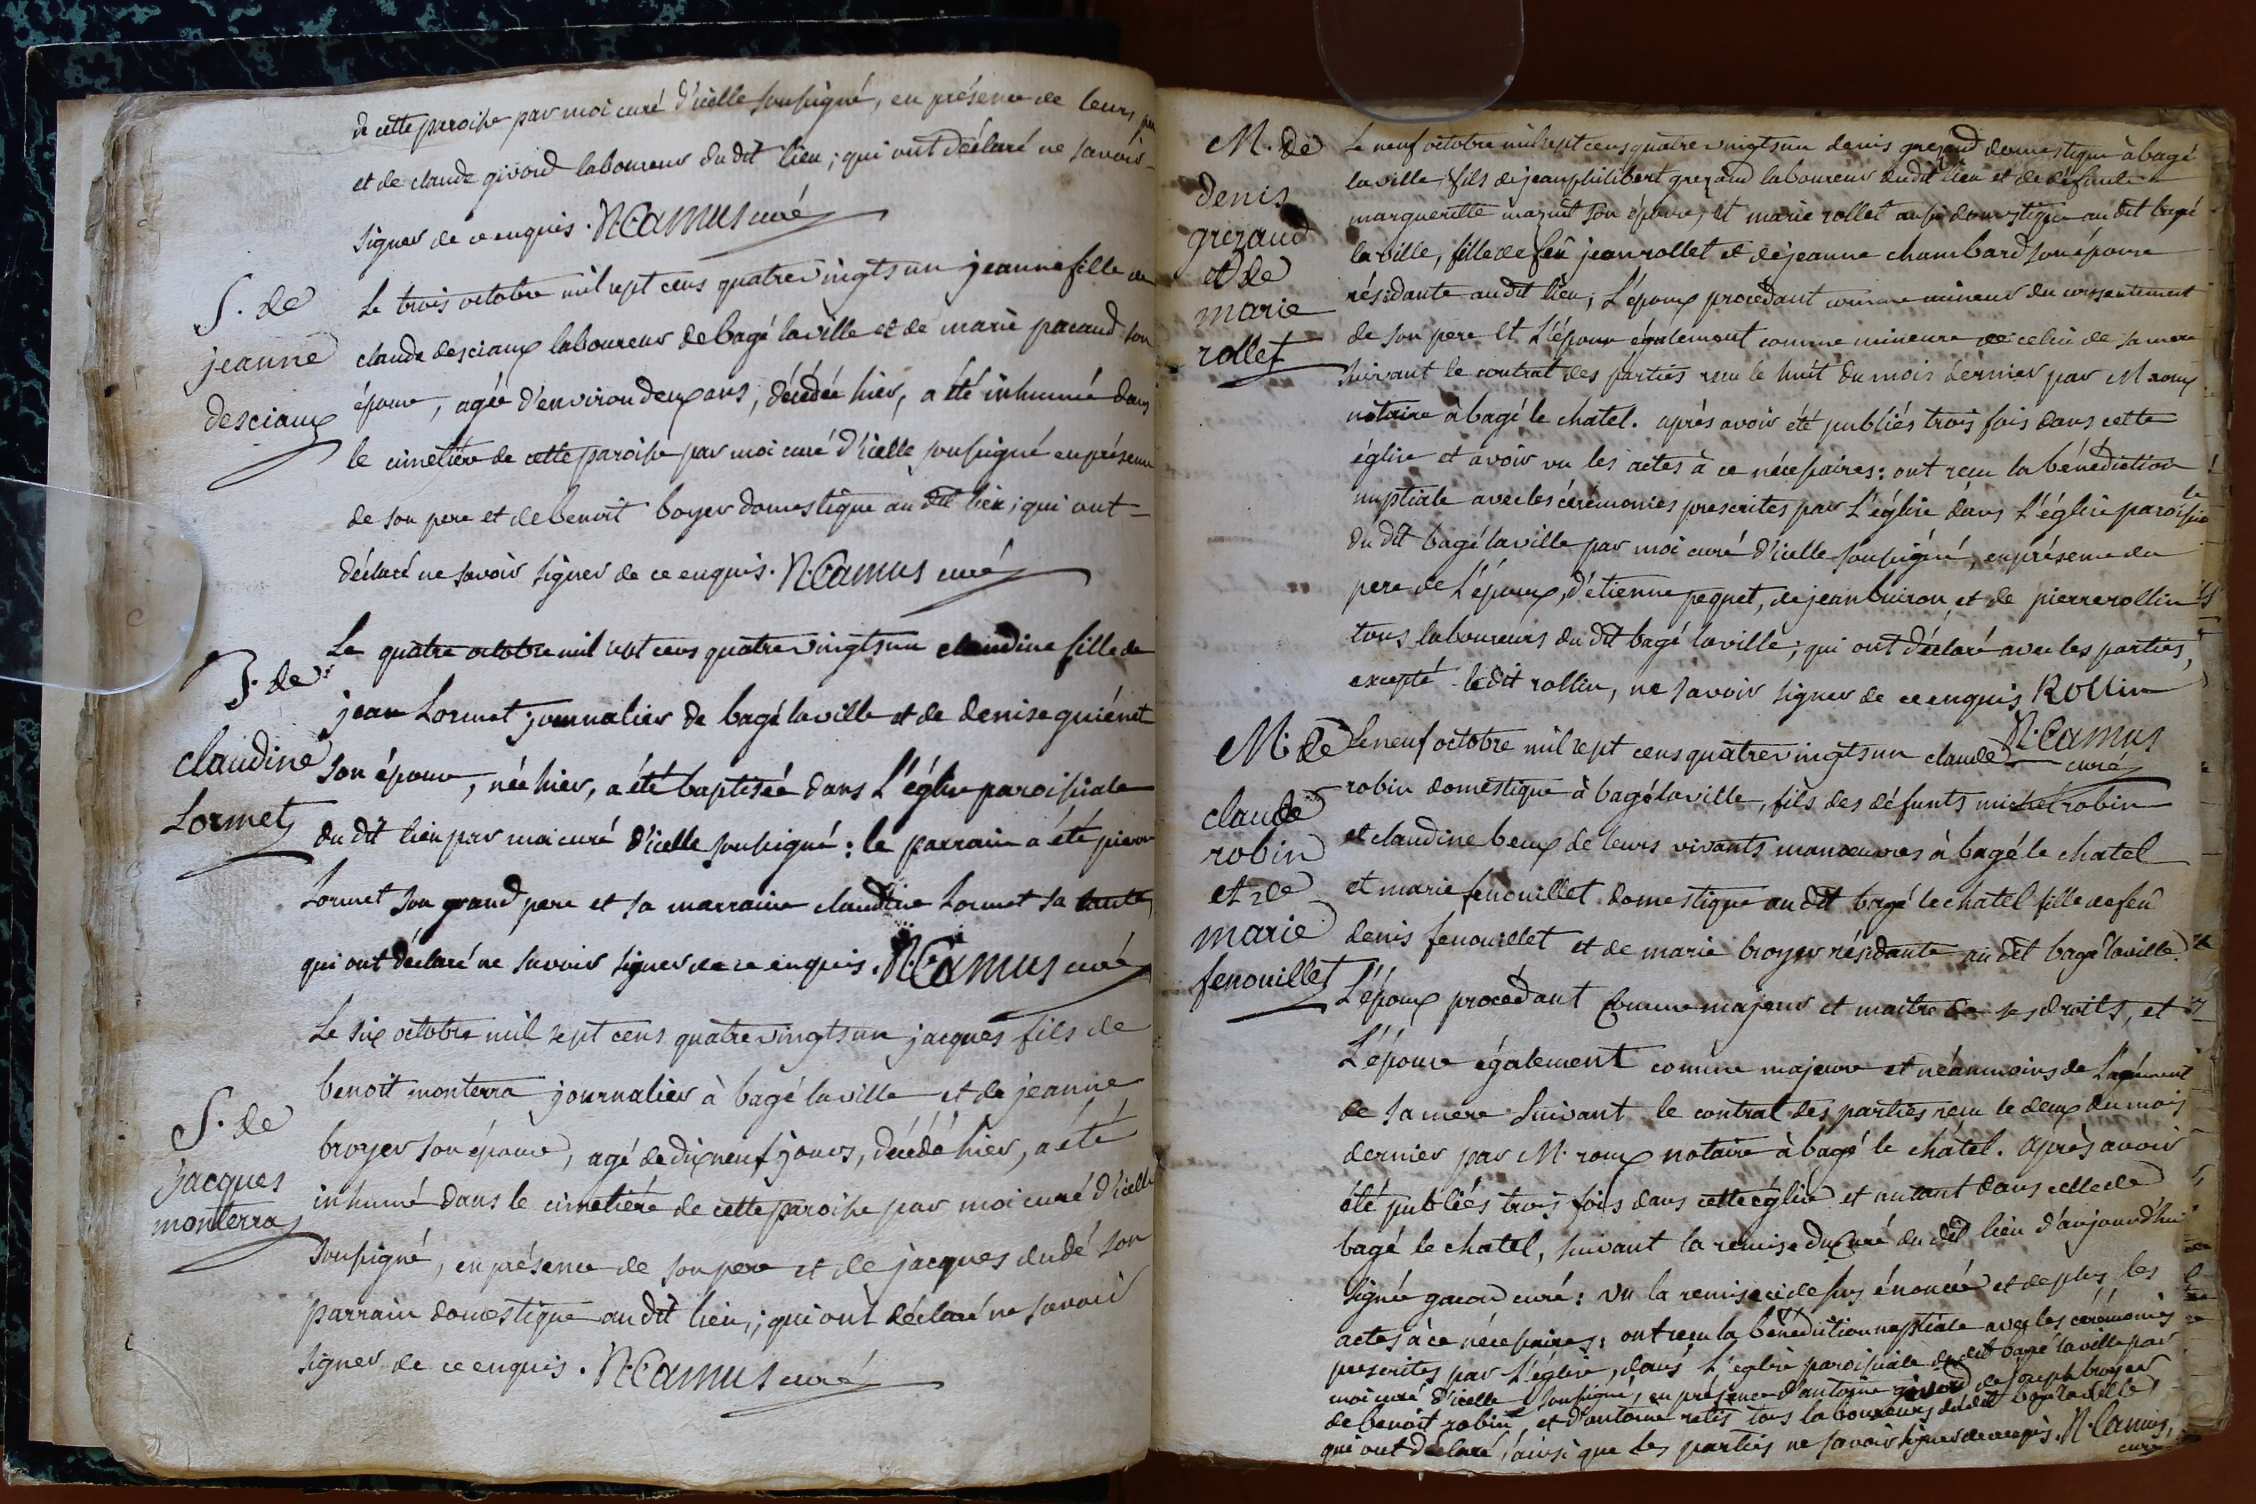 de cette paroisse par moi curé d'icelle soussigné, en présence de leurs
et de claude givord laboureur du dit lieu; qui ont déclaré ne savoir
signer de ce enquis. N. Camus curé
S. de
jeanne
desciaux
Le trois octobre mil sept cens quatre vingts un jeanne fille de
claude desciaux laboureur de bagé la ville et de marie pacaud son
épouse, agée d'environ deux ans, décédée hier, a été inhumée dans
le cimetière de cette paroisse par moi curé d'icelle soussigné en présence
de son pere et de benoit boyer domestique au dit lieu; qui ont
déclaré ne savoir signer de ce enquis. N. Camus curé
B. de
claudine
Lormet
Le quatre octobre mil sept cens quatre vingts un claudine fille de
jean Lormet journalier de bagé la ville et de denise guiénet
son épouse, née hier, a été baptisée dans l'église paroissiale
du dit lieu par moi curé d'icelle soussigné: le parrain a été pierre
Lormet son grand pere et sa marraine claudine Lormet sa tante,
qui ont déclaré ne savoir signer de ce enquis. N. Camus curé
S. de
jacques
monterra
Le six octobre mil sept cens quatre vingts un jacques fils de
benoit monterra journalier à bagé la ville et de jeanne
broyer son épouse, agé de dix neuf jours, décédé hier, a été
inhumé dans le cimetière de cette paroisse par moi curé d'icelle
soussigné, en présence de son pere et de jacques dudé son
parrain domestique au dit lieu; qui ont déclaré ne savoir
signer de ce enquis. N. Camus curé
M. de
denis
grezaud
et de
marie
rollet
Le neuf octobre mil sept cens quatre vingts un denis grezaud domestique à bagé
la ville, fils de jean philibert grezaud laboureur du dit lieu et de défunte
marguerite mazuit son épouse; et marie rollet aussi domestique au dit bagé
la ville, fille de feu jean rollet et de jeanne chambard son épouse
résidante au dit lieu; L'époux procédant comme mineur du consentement
de son pere et L'épouse également comme mineure de celui de sa mere
suivant le contrat des parties reçu le huit du mois dernier par M. roux
notaire à bagé le chatel. après avoir été publiés trois fois dans cette
église et avoir vu les actes à ce nécessaires: ont reçu la bénédiction
nuptiale avec les cérémonies prescrites par L'église dans L'église paroissiale
du dit bagé la ville par moi curé d'icelle soussigné, en présence du
pere de L'époux, d'étienne pequet, de jean buiron et de pierre rollin
tous laboureurs du dit bagé la ville; qui ont déclaré avec les parties,
excepté le dit rollin, ne savoir signer de ce enquis Rollin
N. Camus
curé
M. de
claude
robin
et de
marie
fenouillet
Le neuf octobre mil sept cens quatre vingts un claude
robin domestique à bagé la ville, fils des défunts michel robin
et claudine beux de leurs vivants manœuvres à bagé le chatel
et marie fenouillet domestique au dit bagé le chatel fille de feu
denis fenouillet et de marie broyer résidante au dit bagé la ville.
L'époux procédant comme majeur et maitre de ses droits, et
L'épouse également comme majeure et néanmoins de L'agrément
de sa mere suivant le contrat des parties reçu le deux du mois
dernier par M. roux notaire à bagé le chatel. après avoir
été publiés trois fois dans cette église et autant dans celle de
bagé le chatel, suivant la remise du curé du dit lieu d'aujourd'hui
signée curé: vu la remise ci dessus énoncée et de plus les
actes à ce nécessaires: ont reçu la bénédiction nuptiale avec les cérémonies
prescrites par L'église, dans L'église paroissiale du dit bagé la ville par
moi curé d'icelle soussigné, en présence d'antoine givord de joseph broyer
de benoit robin et d'antoine retis tous laboureurs du dit bagé la ville,
qui ont déclaré, ainsi que les parties ne savoir signer de ce enquis. N. Camus,
curé